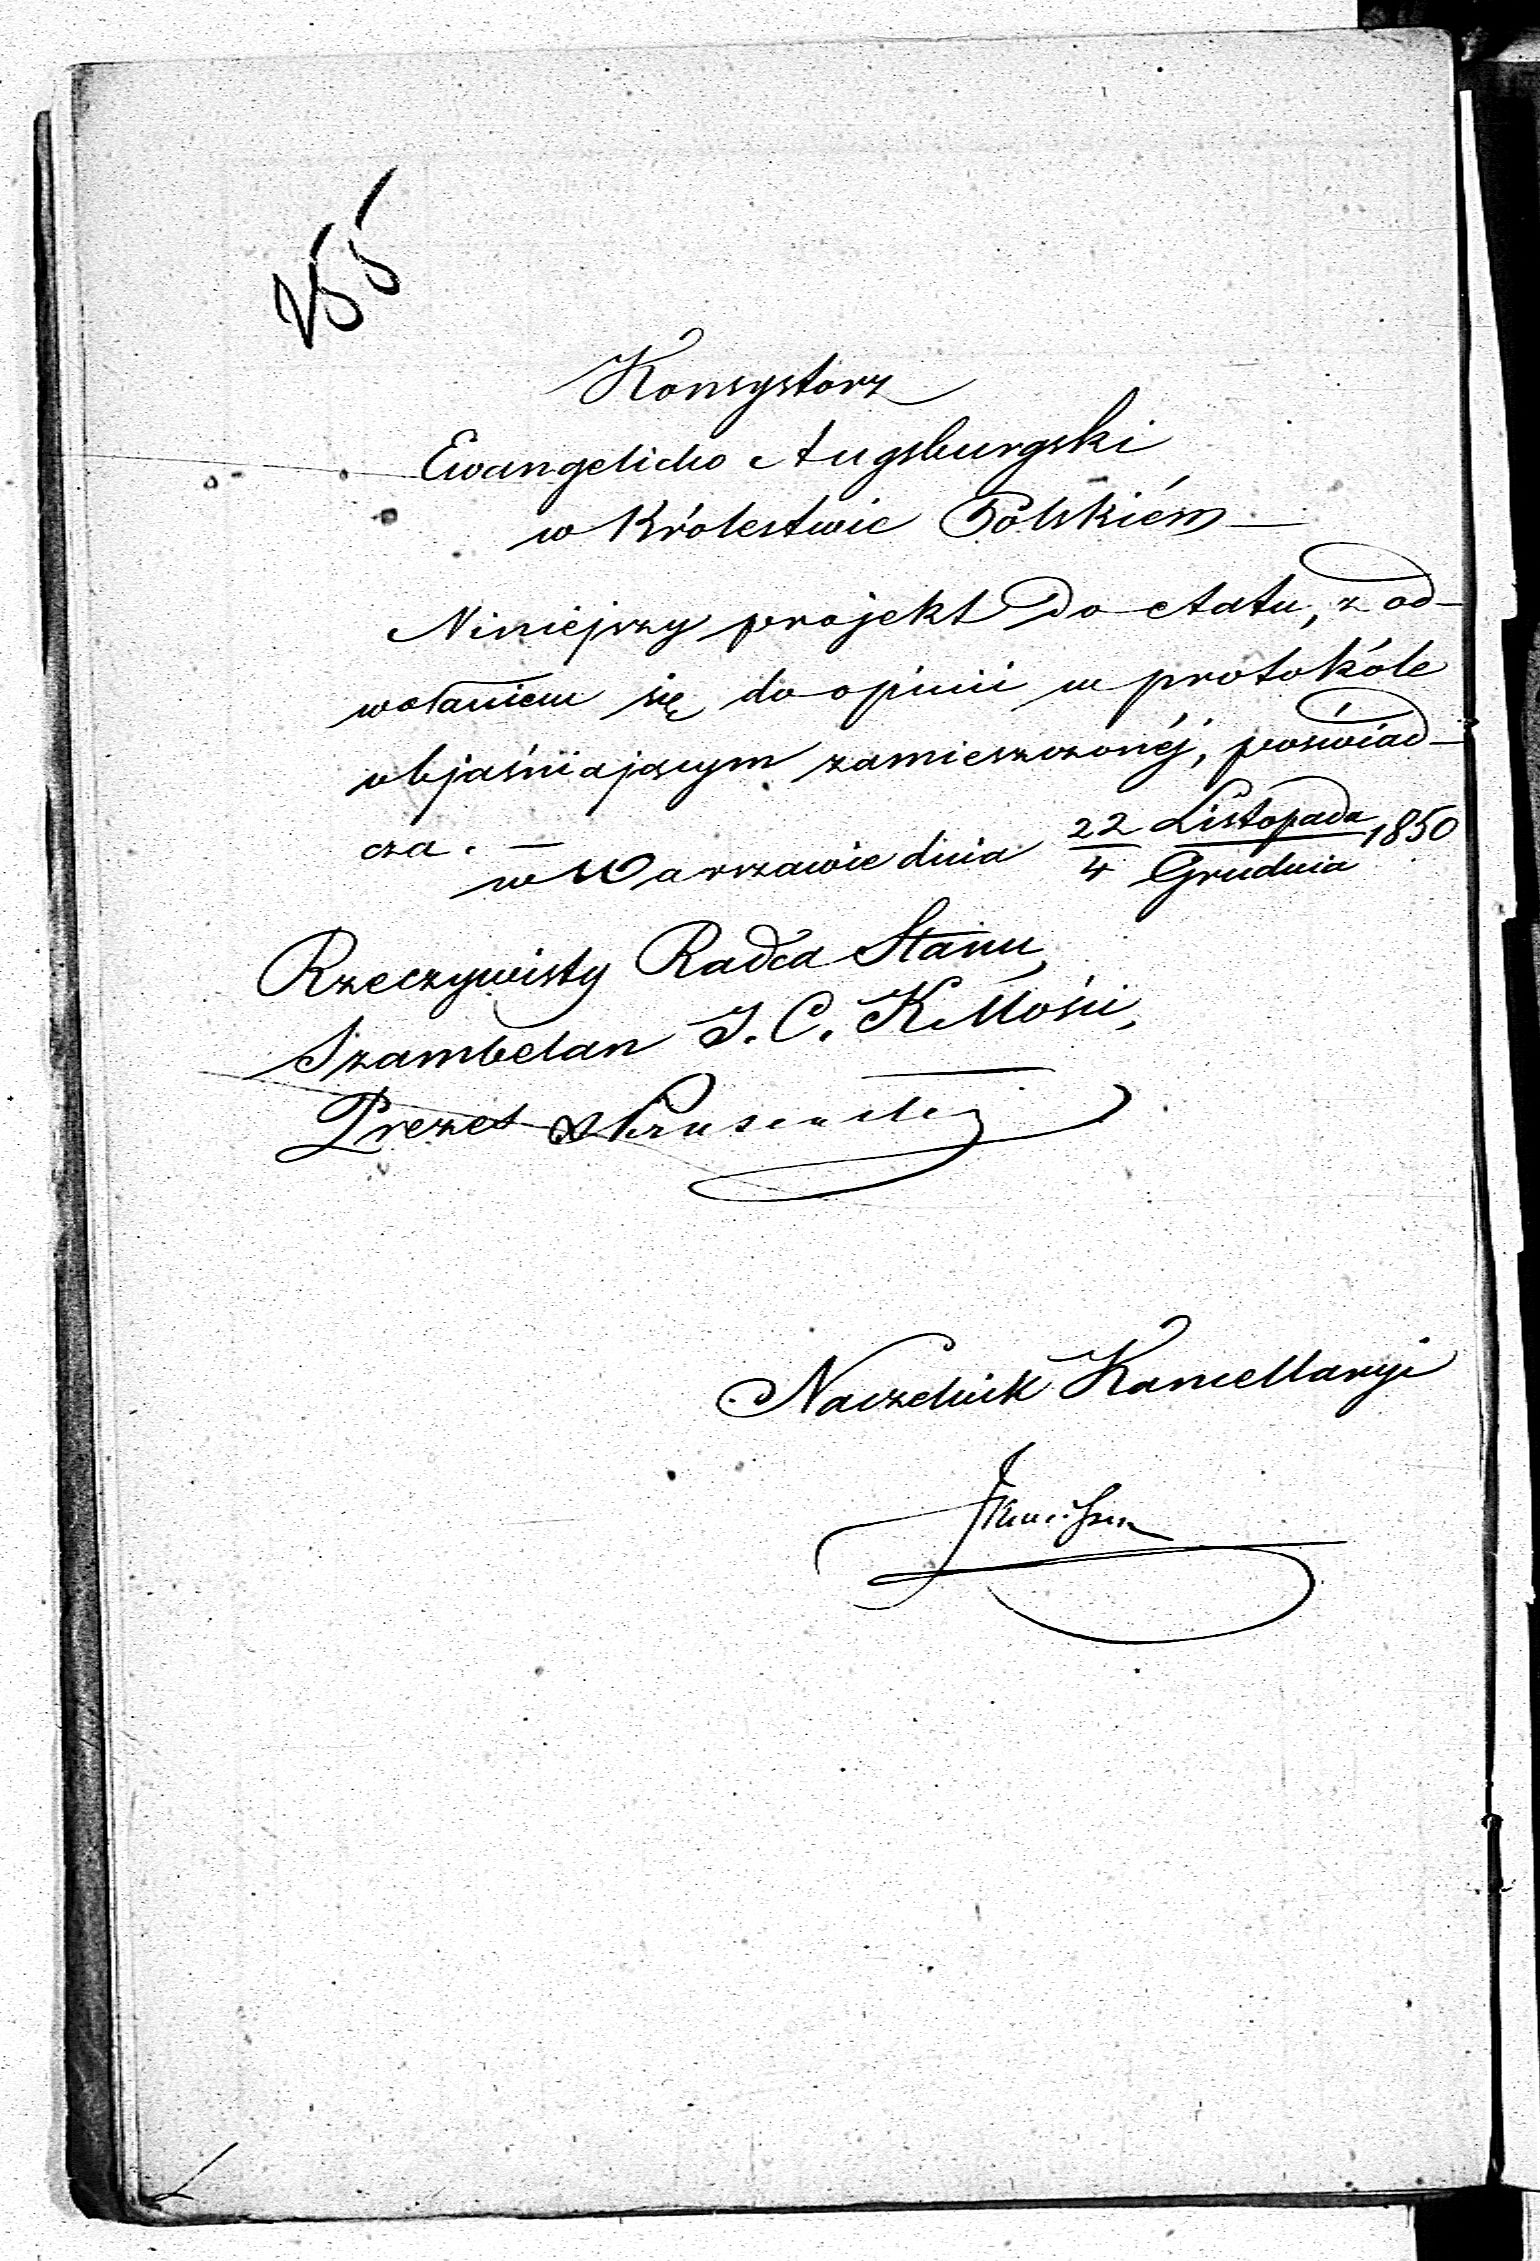 155
Konsystorz
Ewangelicko Augsburgski
w Królestwie Polskiém
Niniejszy projekt do etatu, z od-
wołaniem się do opinii w protokóle
objaśniającym zamieszczonéj, poświad-
cza. —
w Warszawie dnia 22/4 Listopada/Grudnia 1850
Rzeczywisty Radca Stanu
Szambelan J. C. K Mości,
Prezes
Naczelnik Kancellaryi